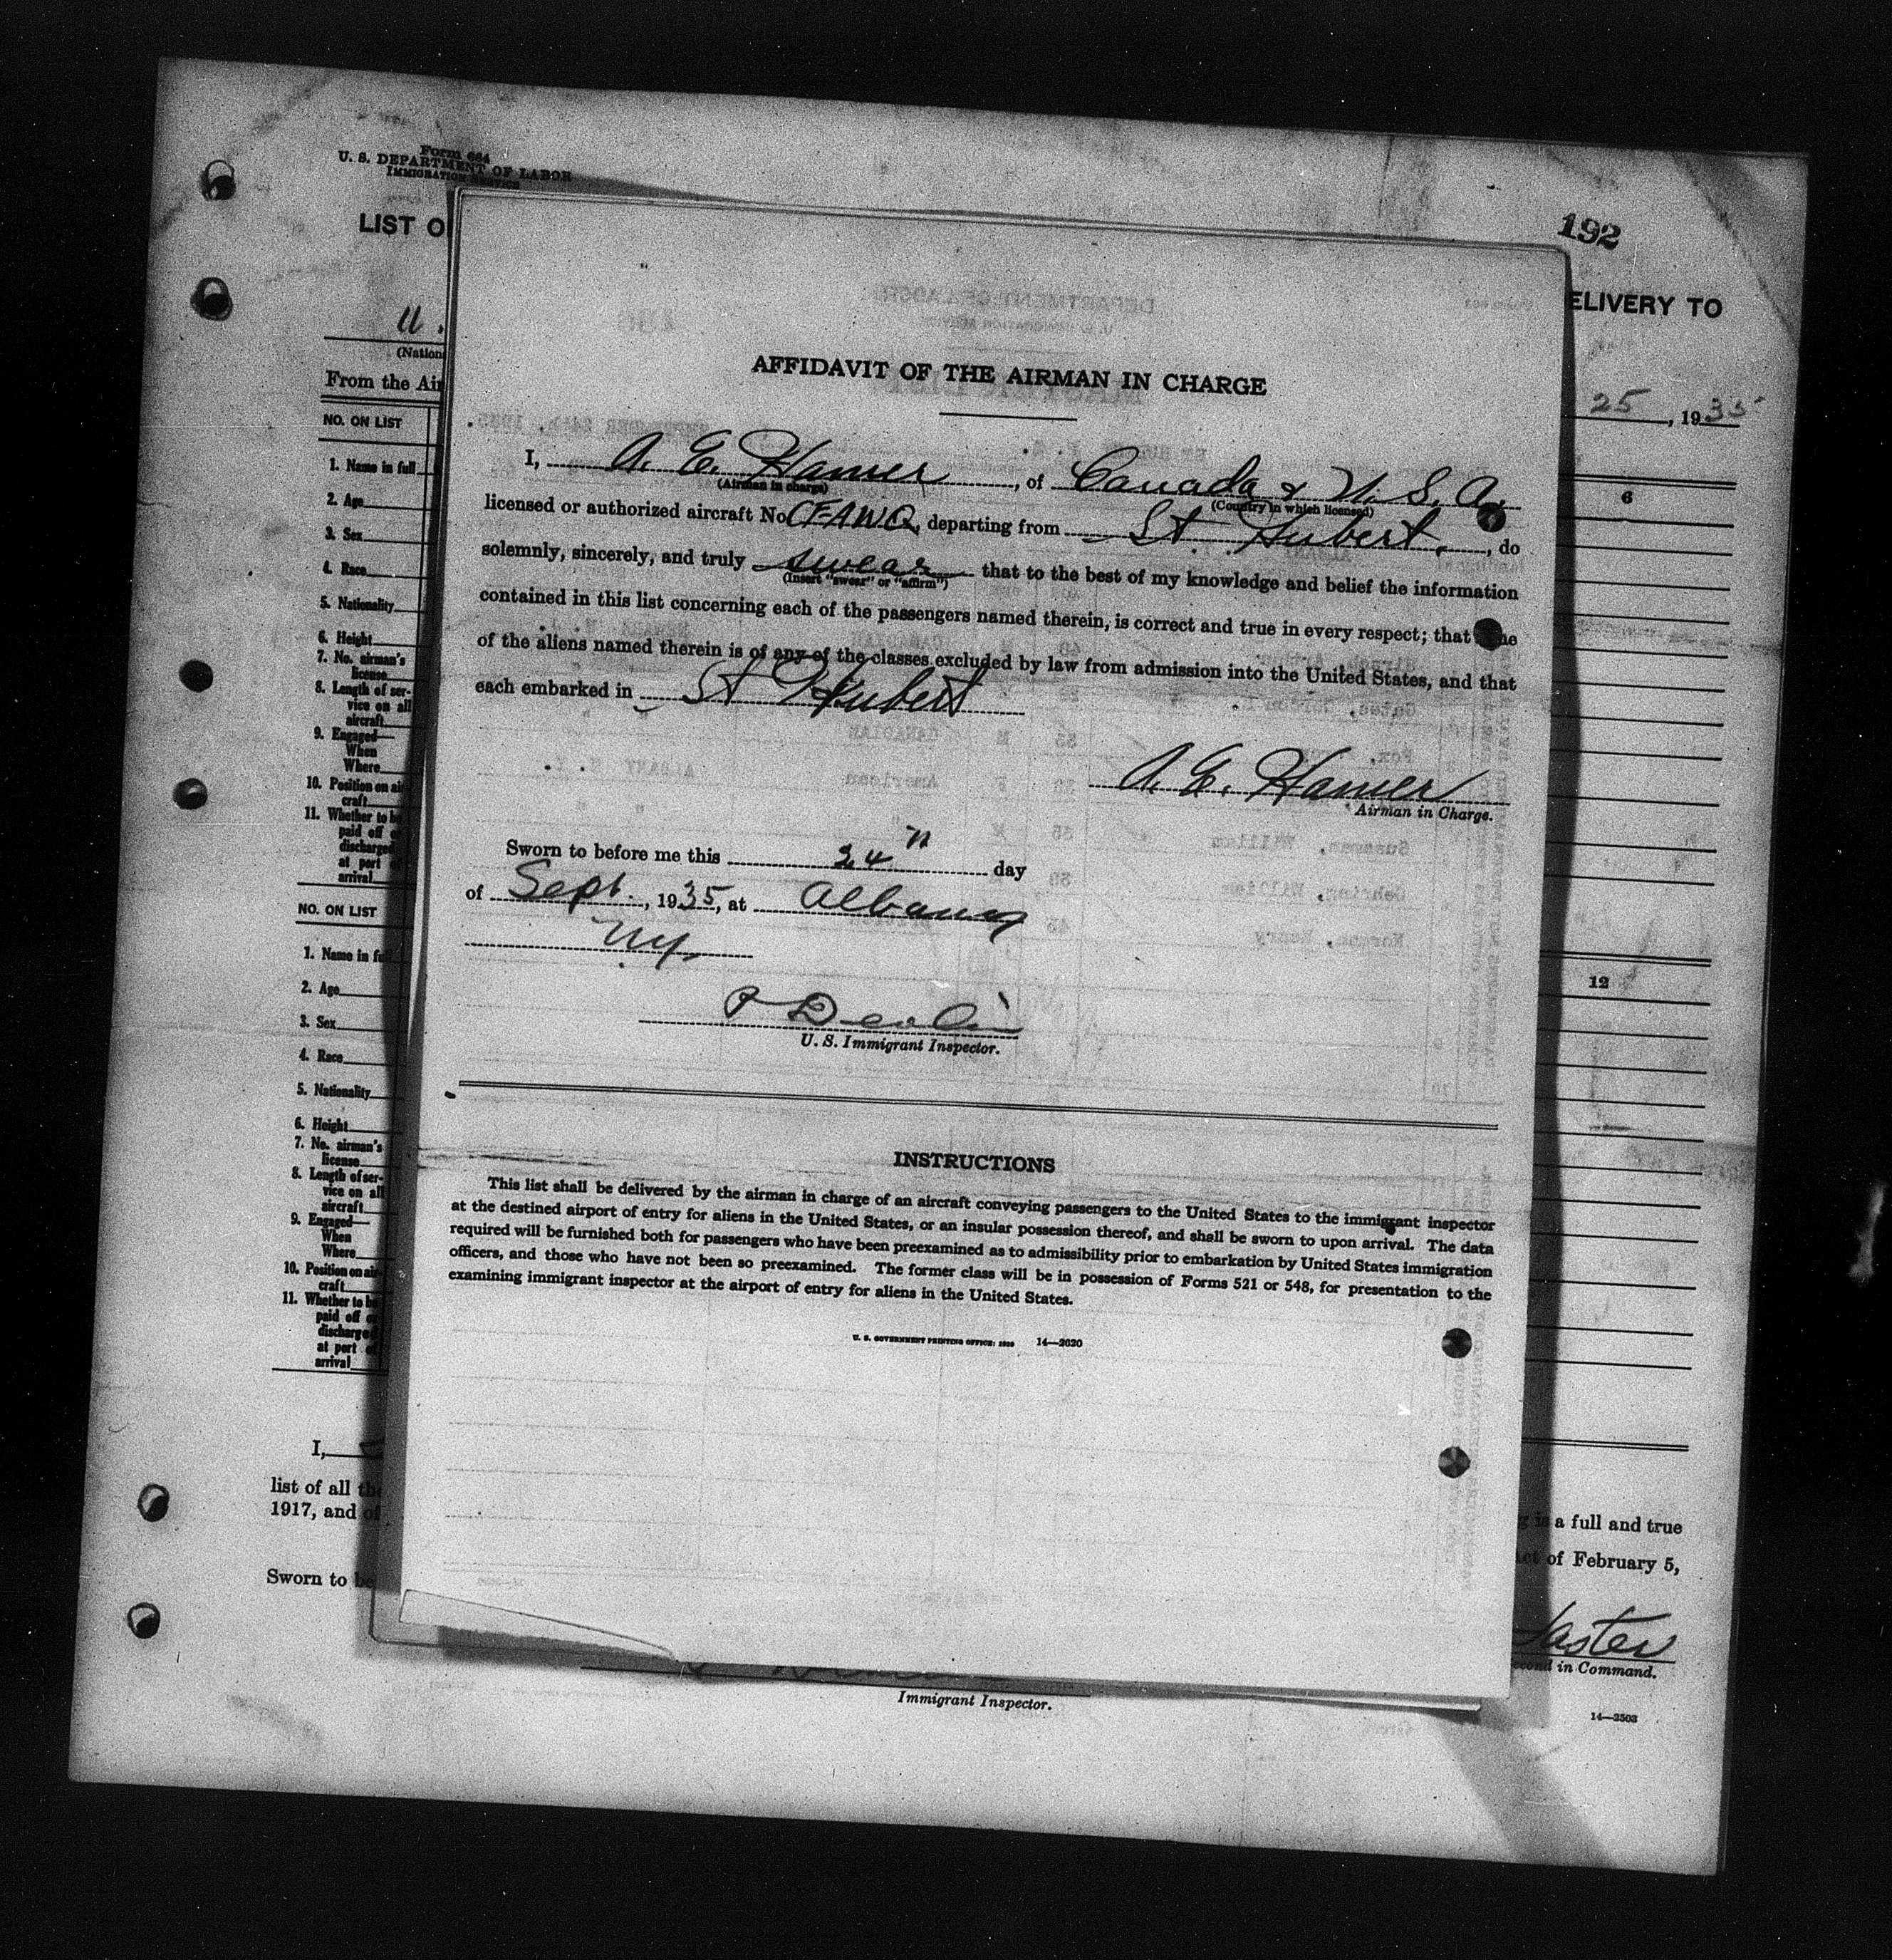 Form 664
U. S. DEPARTMENT OF LABOR
IMMIGRATION SERVICE
LIST O
192
ELIVERY TO
U.
(Nation
From the Air
25, 1935
NO. ON LIST
6
1. Name in full
2. Age
3. Sex
4. Race
5. Nationality
6. Height
7. No. airman's
license
8. Length of ser-
vice on all
aircraft
9. Engaged—
When
Where
10. Position on air-
craft
11. Whether to be
paid off or
discharged
at port of
arrival
NO. ON LIST
12
1. Name in full
2. Age
3. Sex
4. Race
5. Nationality
6. Height
7. No. airman's
license
8. Length of ser-
vice on all
aircraft
9. Engaged—
When
Where
10. Position on air-
craft
11. Whether to be
paid off or
discharged
at port of
arrival
I,
list of all the
1917, and of
Sworn to be
g is a full and true
Act of February 5,
Second in Command.
Immigrant Inspector.
14—2503
AFFIDAVIT OF THE AIRMAN IN CHARGE
I, A. E. Hamer, of Canada & U. S. A.
(Airman in charge) (Country in which licensed)
licensed or authorized aircraft No. CF-AWQ, departing from St. Hubert, do
solemnly, sincerely, and truly swear that to the best of my knowledge and belief the information
(Insert "swear" or "affirm")
contained in this list concerning each of the passengers named therein, is correct and true in every respect; that none
of the aliens named therein is of any of the classes excluded by law from admission into the United States, and that
each embarked in St Hubert
A. E. Hamer
Airman in Charge.
Sworn to before me this 24th day
of Sept., 1935, at Albany
NY.
P Devlin
U. S. Immigrant Inspector.
INSTRUCTIONS
This list shall be delivered by the airman in charge of an aircraft conveying passengers to the United States to the immigrant inspector
at the destined airport of entry for aliens in the United States, or an insular possession thereof, and shall be sworn to upon arrival. The data
required will be furnished both for passengers who have been preexamined as to admissibility prior to embarkation by United States immigration
officers, and those who have not been so preexamined. The former class will be in possession of Forms 521 or 548, for presentation to the
examining immigrant inspector at the airport of entry for aliens in the United States.
U. S. GOVERNMENT PRINTING OFFICE: 14—2620